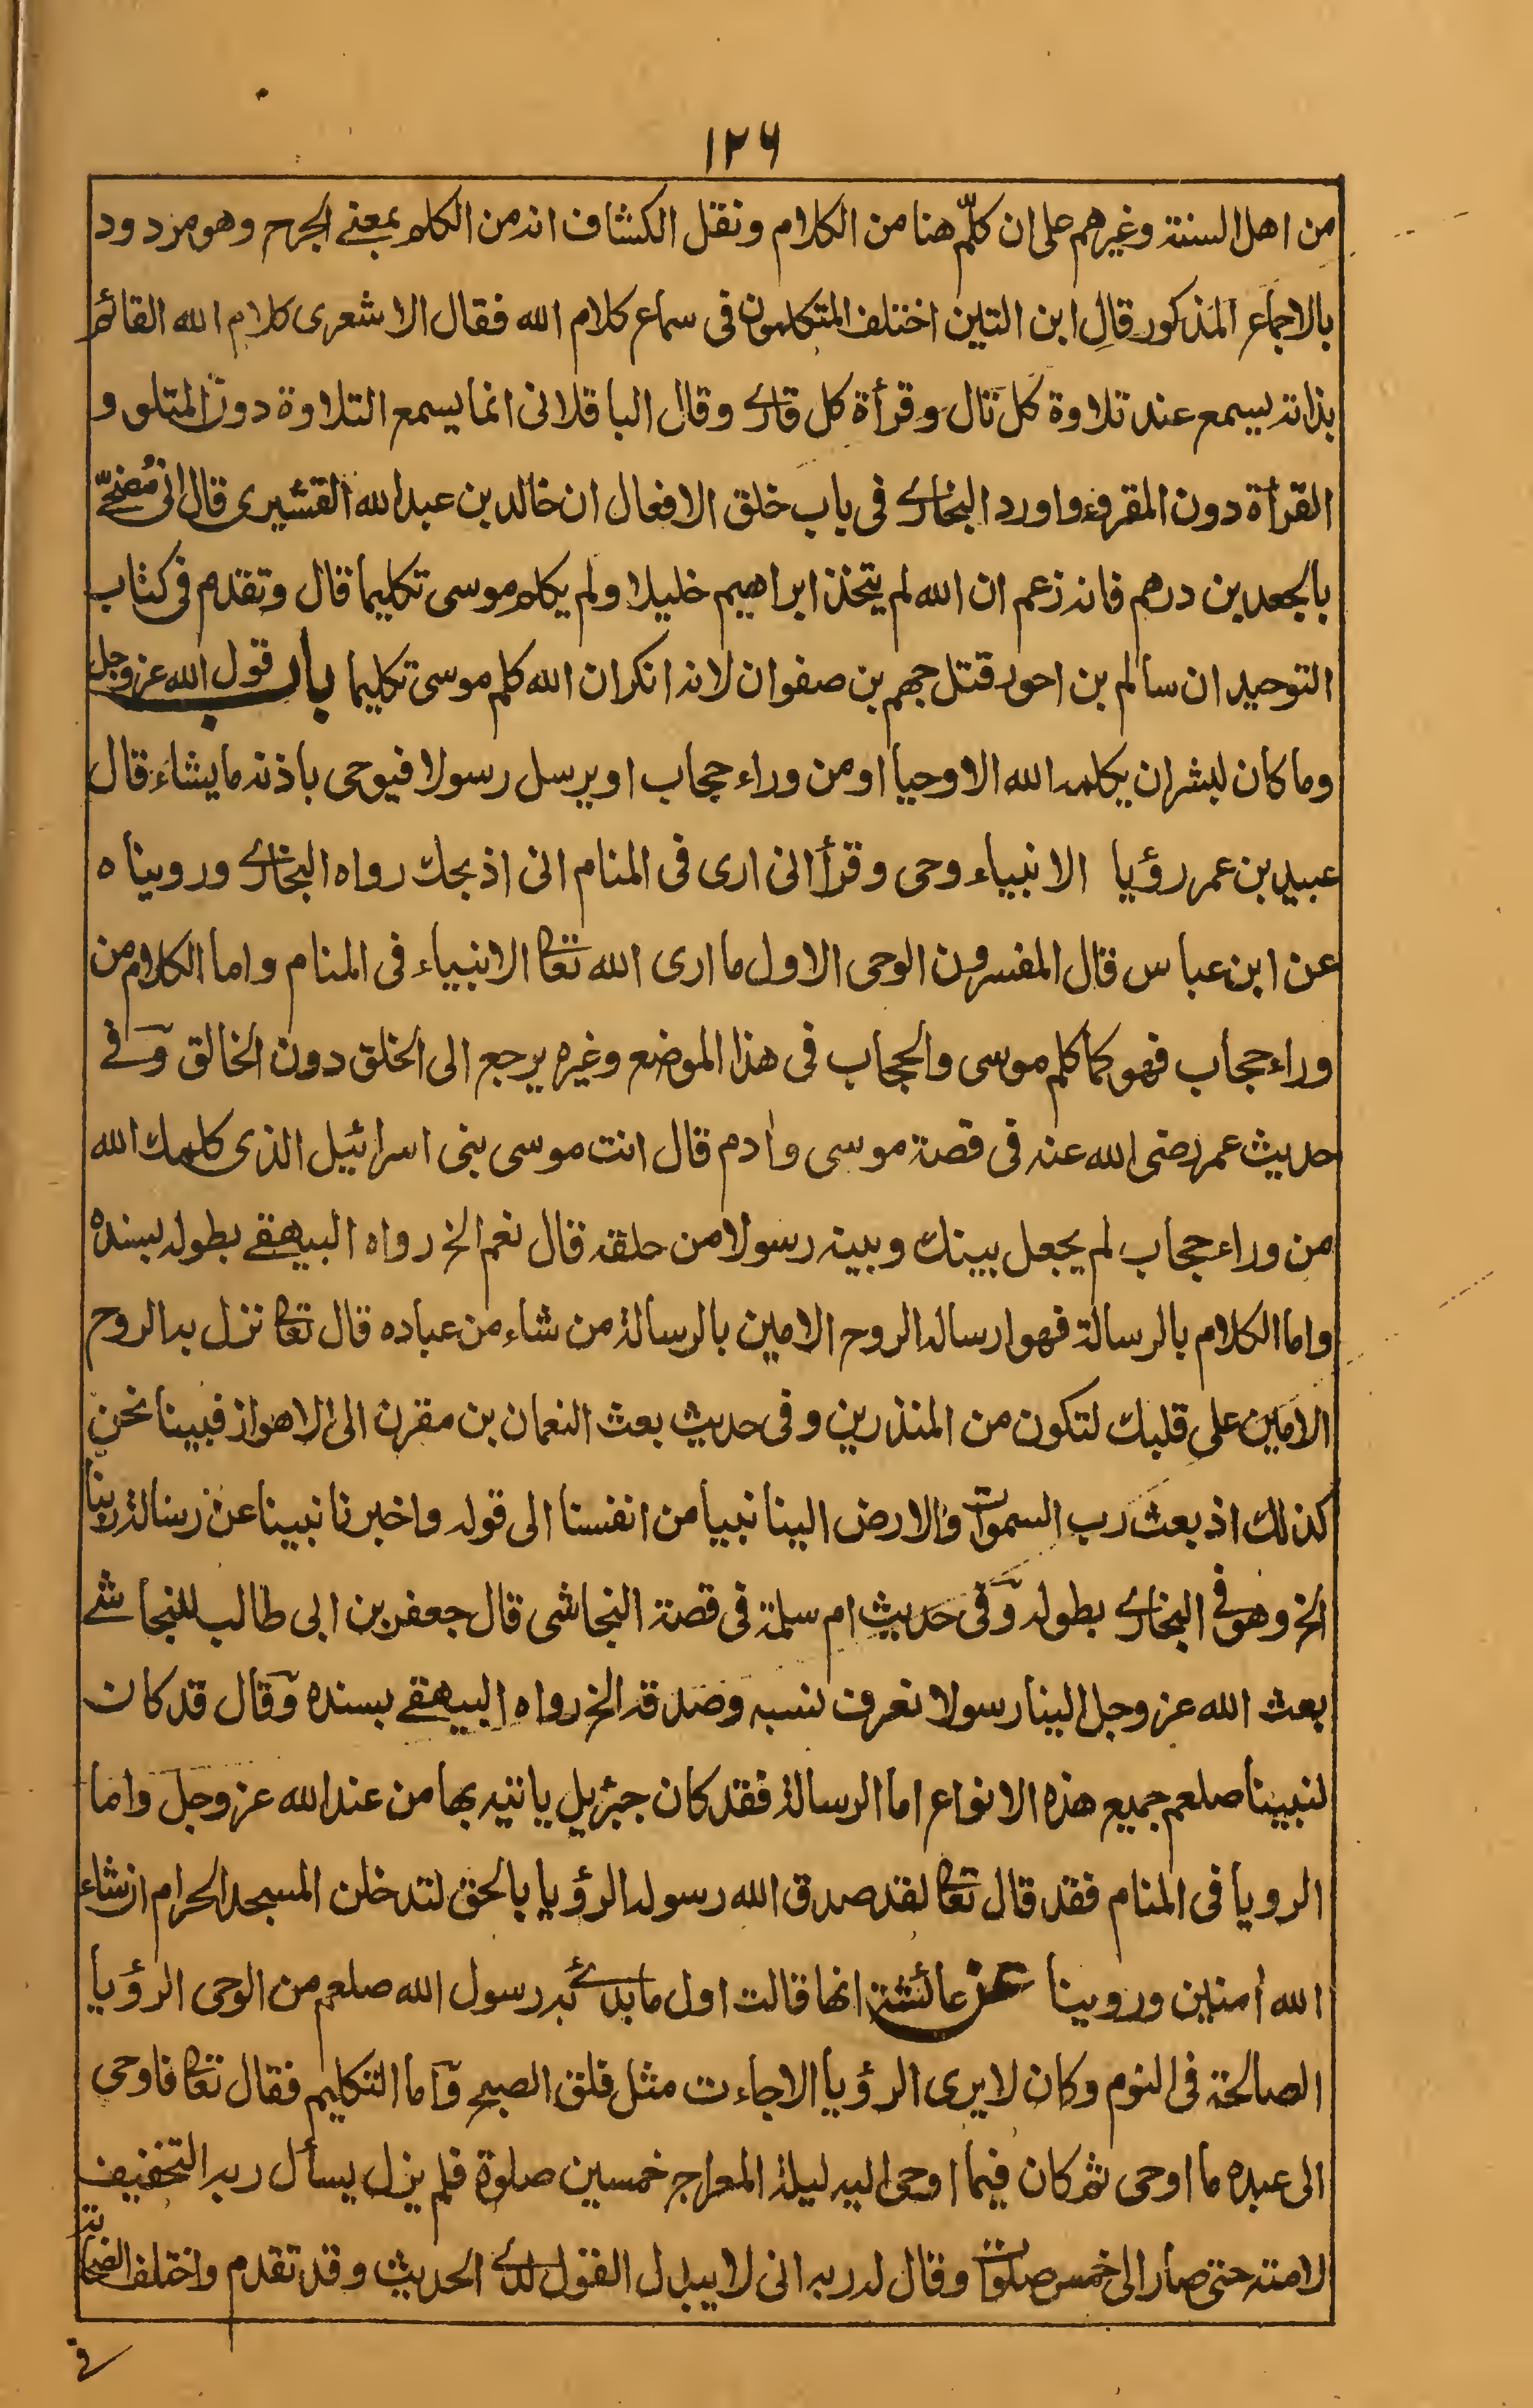 ١٢٦
من اهل السنة وغيرهم على ان كلّم هنا من الكلام ونقل الكشاف انه من الكلم بمعنے الجرح وهو مردود
بالاجماع المذكور قال ابن التين اختلف المتكلمون فى سماع كلام الله فقال الاشعرى كلام الله القائم
بذاته يسمع عند تلاوة كل تال وقرأة كل قارے وقال الباقلانى انما يسمع التلاوة دون المتلو و
القرأة دون المقروء واورد البخارے فى باب خلق الافعال ان خالد بن عبد الله القشيرى قال انى مُضحّے
بالجعد بن درهم فانه زعم ان الله لم يتخذ ابراهيم خليلا ولم يكلم موسى تكليما قال وتقدم فى كتاب
التوحيد ان سالم بن احور قتل جهم بن صفوان لانه انكر ان الله كلم موسى تكليما باب قول الله عز وجل
وما كان لبشر ان يكلمه الله الا وحيا او من وراء حجاب او يرسل رسولا فيوحى باذنه ما يشاء قال
عبيد بن عمر رؤيا الانبياء وحى وقرأ انى ارى فى المنام انى اذبحك رواه البخارے ورويناه
عن ابن عباس قال المفسرون الوحى الاول ما ارى الله تعا الانبياء فى المنام واما الكلام من
وراء حجاب فهو كما كلم موسى والحجاب فى هذا الموضع وغيره يرجع الى الخلق دون الخالق وفے
حديث عمر رضى الله عنه فى قصة موسى وادم قال انت موسى بنى اسرائيل الذى كلمك الله
من وراء حجاب لم يجعل بينك وبينه رسولا من حلقه قال نعم الخ رواه البيهقے بطوله بسنده
واما الكلام بالرسالة فهو ارساله الروح الامين بالرسالة من شاء من عباده قال تعا نزل به الروح
الامين على قلبك لتكون من المنذرين وفى حديث بعث النعمان بن مقرن الى الاهواز فبينا نحن
كذلك اذ بعث رب السموات والارض الينا نبيا من انفسنا الى قوله واخبرنا نبينا عن رسالة ربنا
الخ وهو فے البخارے بطوله وفى حديث ام سلمة فى قصة النجاشى قال جعفر بن ابى طالب للنجاشے
بعث الله عز وجل الينا رسولا نعرف نسبه وصدقه الخ رواه البيهقے بسنده وقال قد كان
لنبينا صلعم جميع هذه الانواع اما الرسالة فقد كان جبرئيل ياتيه بها من عند الله عز وجل واما
الرويا فى المنام فقد قال تعا لقد صدق الله رسوله الرؤيا بالحق لتدخلن المسجد الحرام ان شاء
الله أمنين وروينا عن عائشة انها قالت اول ما بدئے به رسول الله صلعم من الوحى الرؤيا
الصالحة فى النوم وكان لا يرى الرؤيا الا جاءت مثل فلق الصبح واما التكليم فقال تعا فاوحى
الى عبده ما اوحى ثم كان فيما اوحى اليه ليلة المعراج خمسين صلوة فلم يزل يسأل ربه التخفيف
لامته حتى صار الى خمس صلوات وقال له ربه انى لا يبدل القول لدے الحديث وقد تقدم واختلف الصحابة
فے